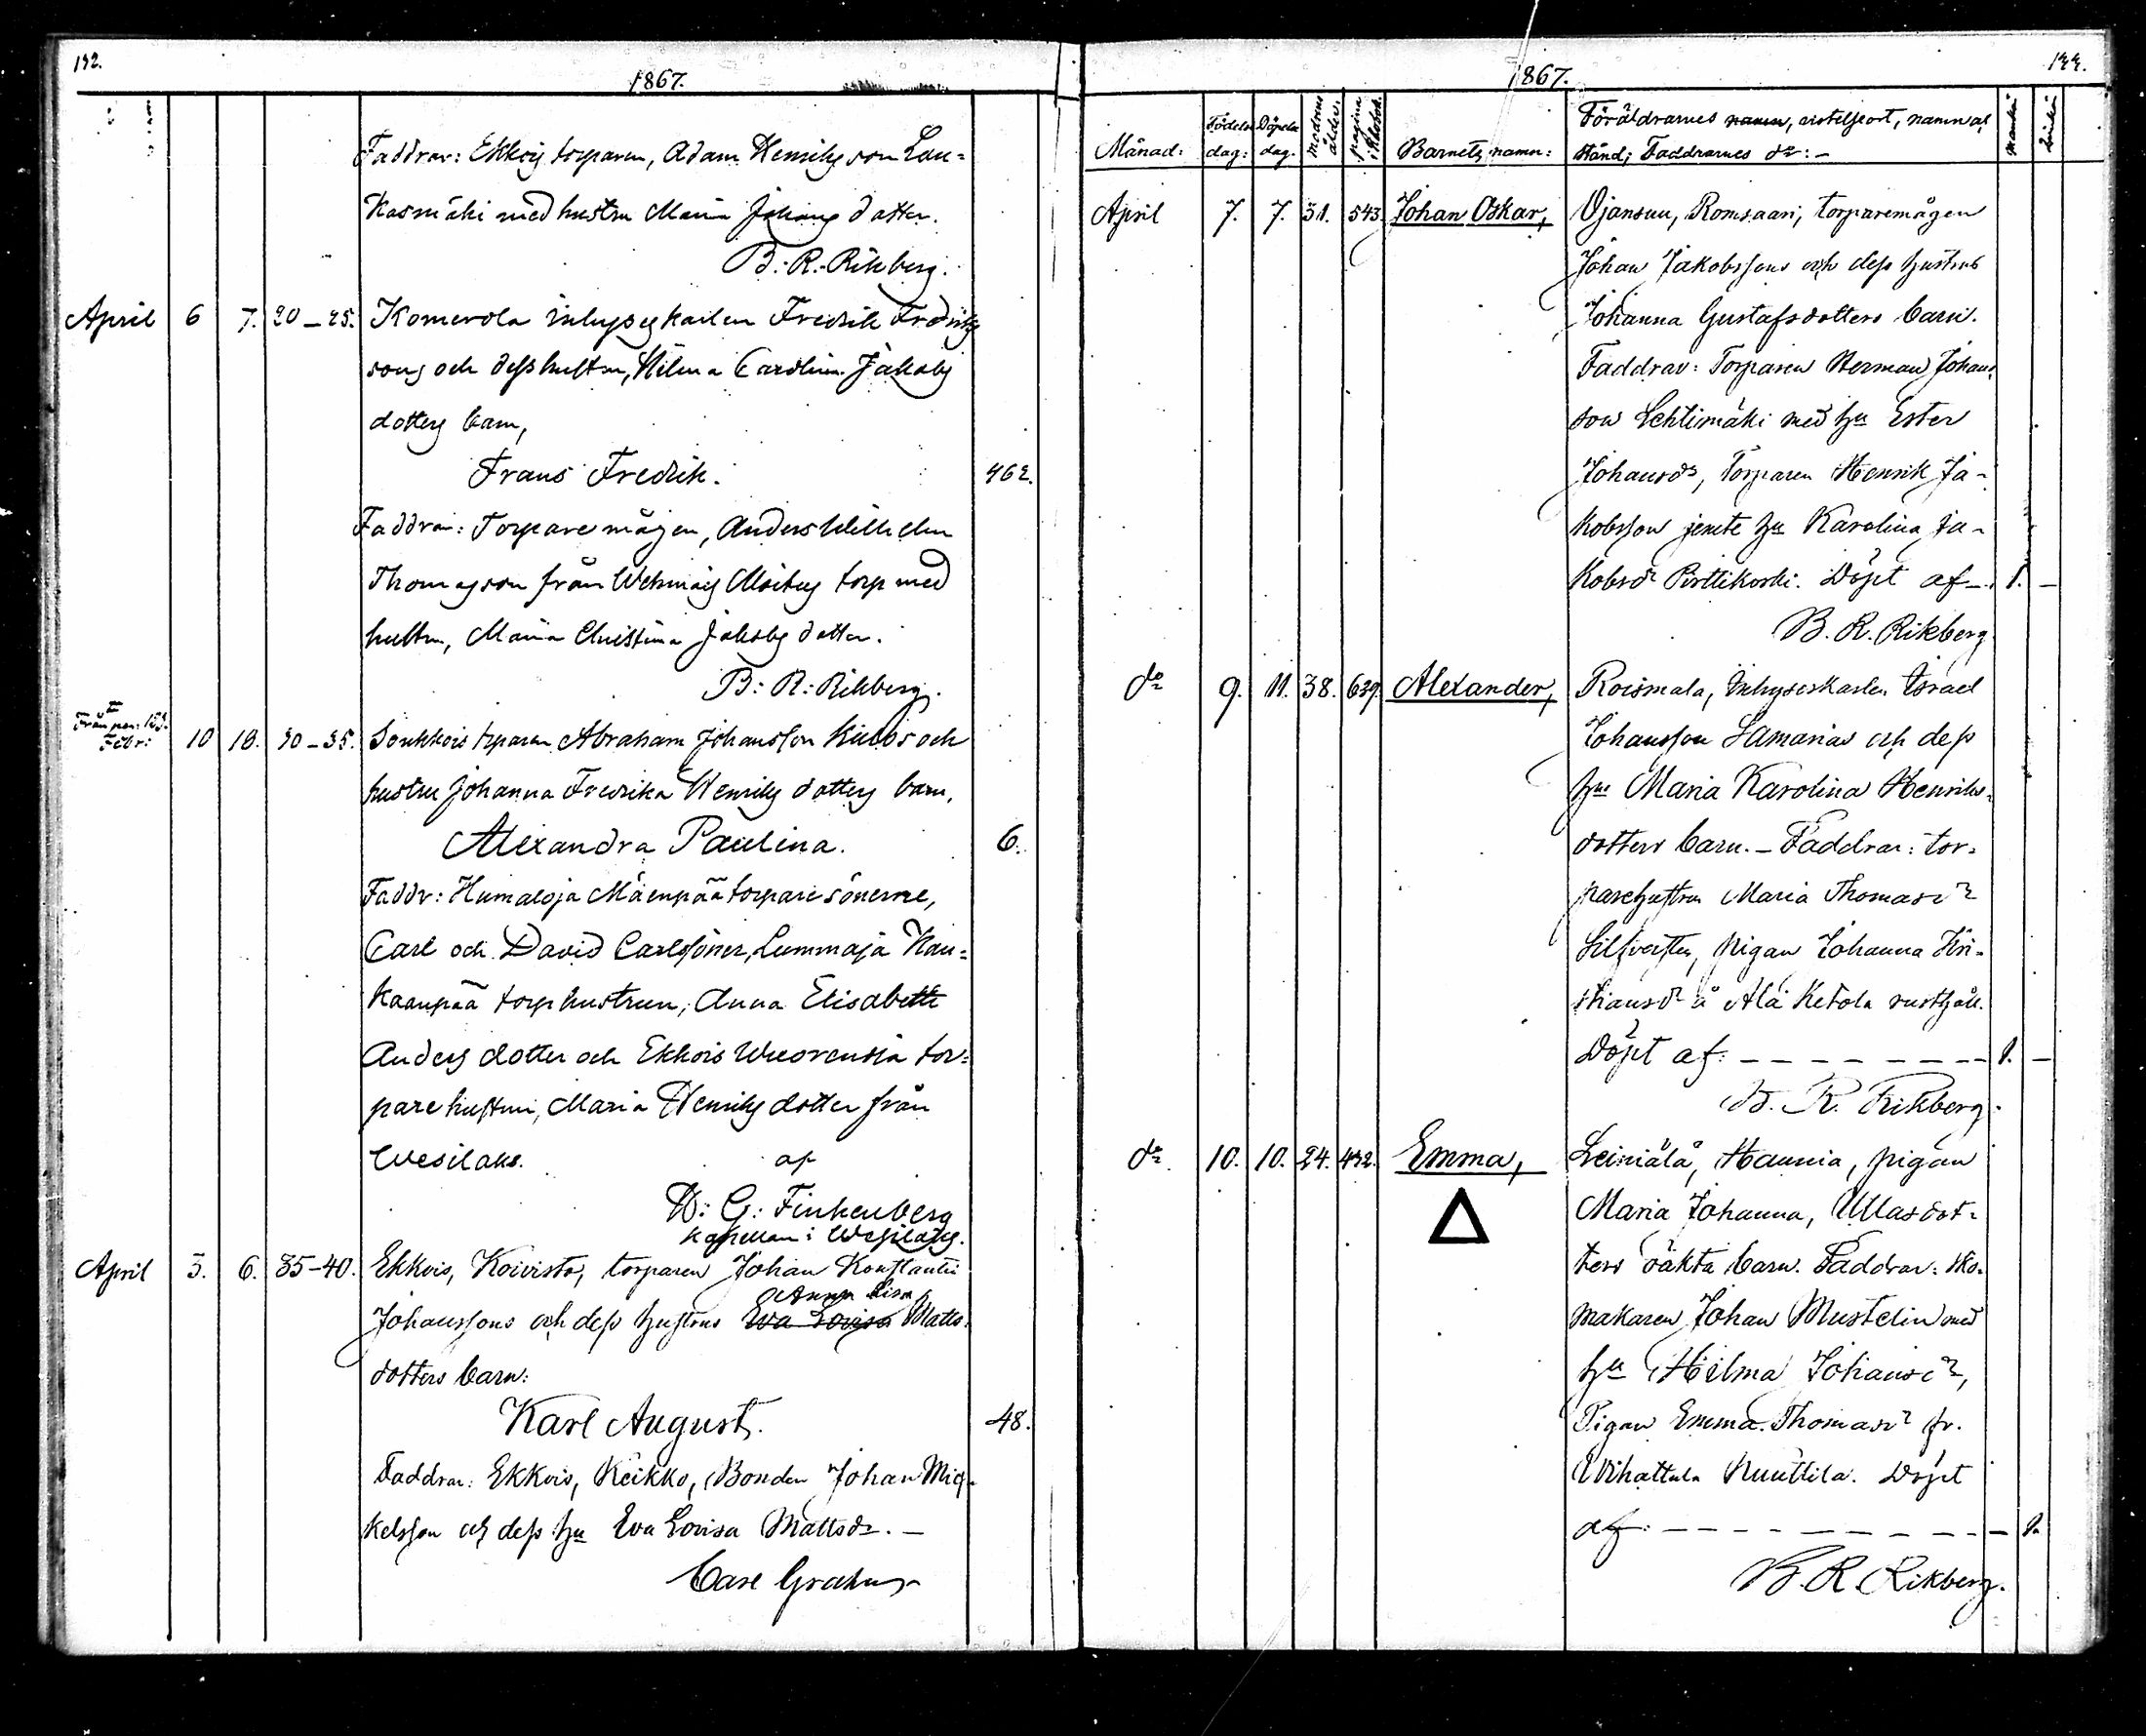 192.
1867.
Faddrar: Ekkois torparen, Adam Henriks son Lau=
kasmäki med hustru Maria Johans dotter.
B: R: Rikberg.
April 6 7. 20-25. Komerola inhyses karlen Fredrik Fredriks
sons och dess hustru, Hilma Carolina Jakobs
dotters barn,
Frans Fredrik. 462.
Faddrar: Torpare mågen, Anders Wilhelm
Thomasson från Wehmais torp med
hustru, Maria Christina Jakobs dotter.
B: R: Rikberg.
Från pag: 183.
Febr: 10 18. 30-35. Soukkois torparen Abraham Johansson och
hustru Johanna Fredrika Henriks dotters barn,
Alexandra Paulina. 6.
Faddr: Humaloja Mäenpää torpare sönerne,
Carl och David Carlssöner, Lummaja Kau=
kaanpää torp hustrun, Anna Elisabeth
Anders dotter och Ekkois Wuorensia tor=
pare hustrun, Maria Henriks dotter från
Wesilaks. af
K: G: Finkenberg
Kapellan i Wesilaks.
April 3. 6. 35-40. Ekkois, Koivisto, torparen Johan Konstantin
Anna Lisa
Johanssons och dess hustrus Eva Lovisa Matts-
dotters barn:
Karl August. 48.
Faddrar: Ekkois, Keikko, Bonden Johan Mic-
kelsson och dess hu Eva Lovisa Mattsdr. -
Carl Grahn
1867.
Månad: Födelse dag: Döpelse dag. modrens ålder. pagina i Kkobok. Barnets namn: Föräldrarnes namn, vistelseort, namn ch
stånd; Faddrarnes do: -
April 7. 7. 31. 543. Johan Oskar, Ojansuu, Romsaari, torparemågen
Johan Jakobssons och dess hustrus
Johanna Gustafsdotters barn.
Faddrar: Torparen Herman Johans-
son Lehtimäki med hu Ester
Johansdr, Torparen Henrik Ja-
kobsson jemte hu Karolina Ja-
kobsdr Pirttikoski. Döpt af - 1. -
B. R. Rikberg
do 9. 11. 38. 639. Alexander, Roismala, Inhyseskarlen Israel
Johansson Samarias och dess
hus Maria Karolina Henriks-
dotters barn. - Faddrar: tor-
parehustrun Maria Thomasdr
pigan Johanna Kri-
stiansdr å Ala Ketola rusthåll.
Döpt af: - - - - - - - 1. -
B. R. Rikberg.
do 10. 10. 24. 432. Emma, Leiniälä, Haunia, pigan
Maria Johanna, Ullasdot-
ters oäkta barn. Faddrar: sko-
makaren Johan Mustelin med
hu Hilma Johansdr,
Pigan Emma Thomasdr fr.
Wihattula Nuutila. Döpt
af: - - - - - - - - - 1.
B. R. Rikberg.